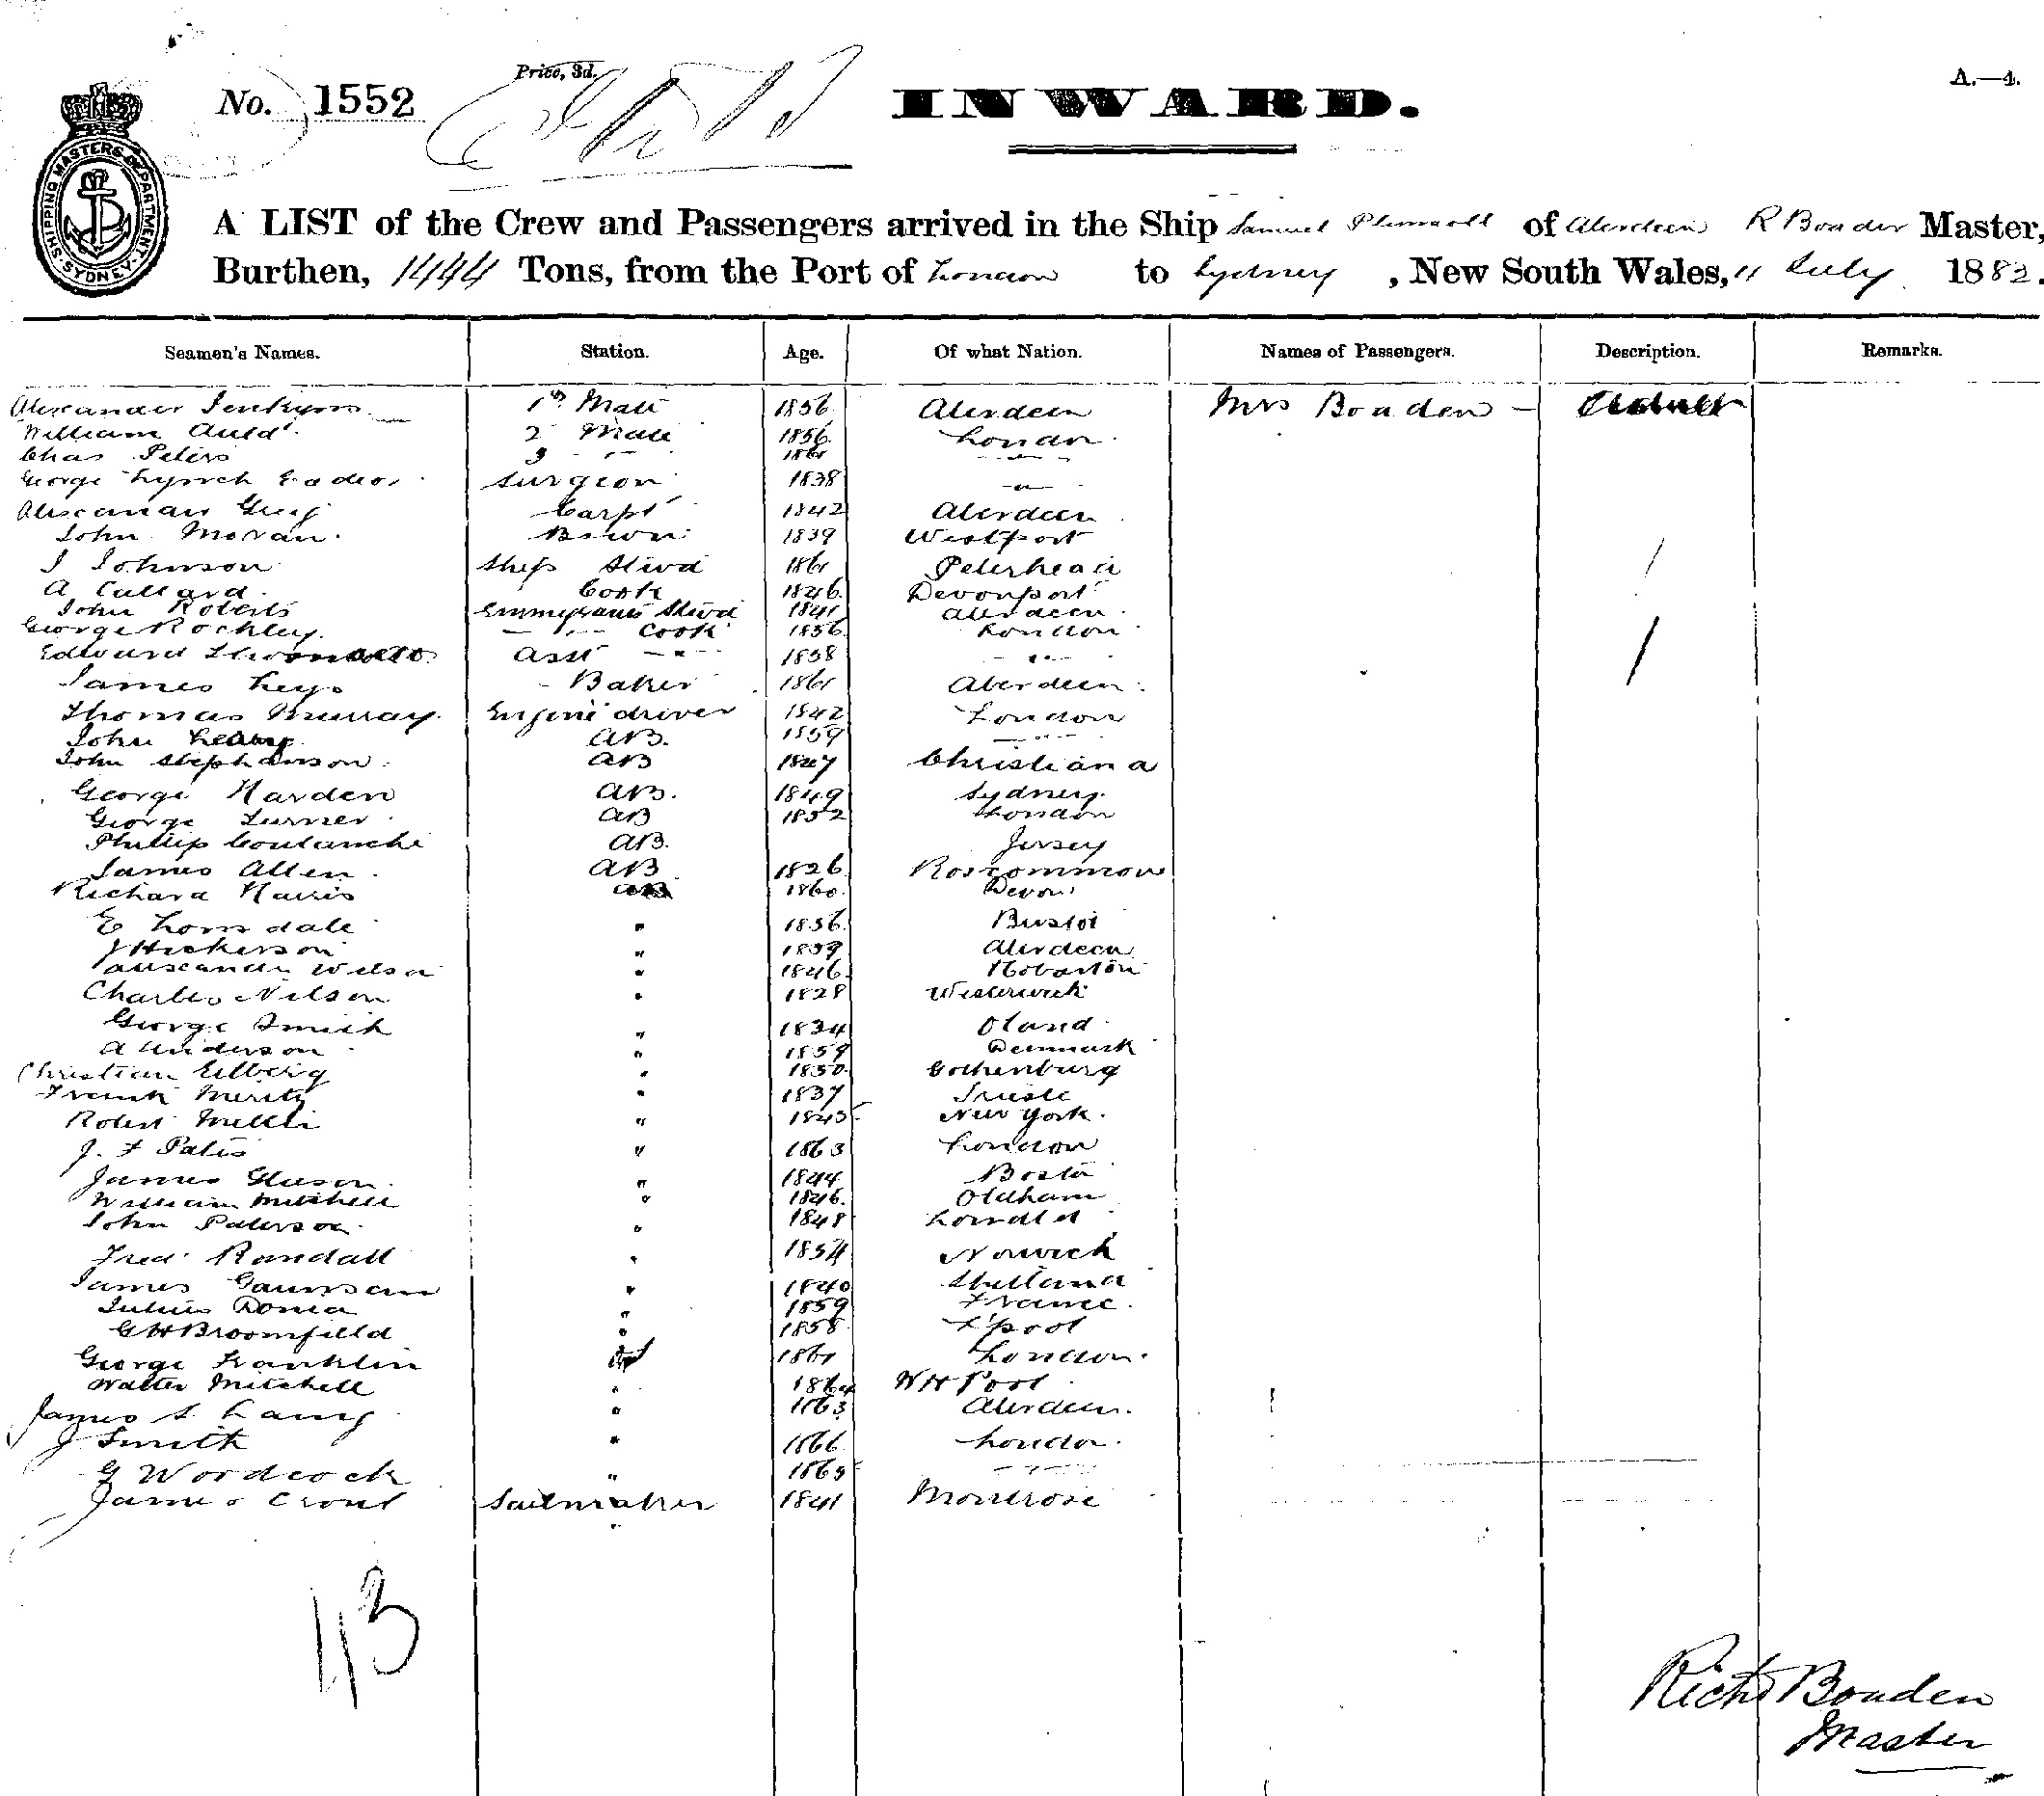 No. 1552
Price, 3d.
INWARD.
A.—4.
SHIPPING MASTERS DEPARTMENT · SYDNEY ·
A LIST of the Crew and Passengers arrived in the Ship Samuel Plimsoll of Aberdeen R Boaden Master,
Burthen, 1444 Tons, from the Port of London to Sydney, New South Wales, 11 July 1882.
Seamen's Names. Station. Age. Of what Nation. Names of Passengers. Description. Remarks.
Alexander Jenkyns 1st Mate 1856 Aberdeen Mrs Boaden - Adult
William Auld 2 Mate 1856 London
Chas Peters 3 " 1861 "
George Lynch surgeon 1838 "
Alexander Greig Carpt 1842 Aberdeen
John Moran Bswn 1839 Westport
J Johnson Ships Stwd 1861 Peterhead
A Callard Cook 1846 Devonport
John Roberts Emmigrants Stwd 1841 Aberdeen
George Rockley " Cook 1856 London
Edward Asst " 1858 "
James Leys Baker 1861 Aberdeen
Thomas Murray Engine driver 1842 London
John Leary AB. 1859 "
John Stephenson AB 1847 Christiana
George Harden AB. 1849 Sydney
George Turner AB 1852 London
Phillip Coutanche AB. Jersey
James Allen AB 1826 Roscommon
Richard Harris AB 1860 Devon
E Lonsdale " 1856 Bristol
J Hickerson " 1859 Aberdeen
Alexander Wilson " 1846 Hobarton
Charles Nilson " 1828 Westerwick
George Smith " 1834 Oland
A Anderson " 1859 Denmark
Christian Edberg " 1850 Gothenburg
Frank " 1837 Trieste
Robert " 1845 New York.
J. F Pates " 1863 London
James " 1844 Bosto
William Mitchell " 1846 Oldham
John Paterson " 1848
Fred Randall " 1854 Norwich
James " 1840 Shetland
Julius " 1859 France.
G H Broomfield " 1858 L'pool
George Franklin 1861 London.
Walter Mitchell " 1864 W H Pool
James S. Laing " 1863 Aberdeen.
J Smith " 1866 London.
G Woodcock " 1865 "
James Crout Sailmaker 1841 Montrose
43
Richd Boaden
Master